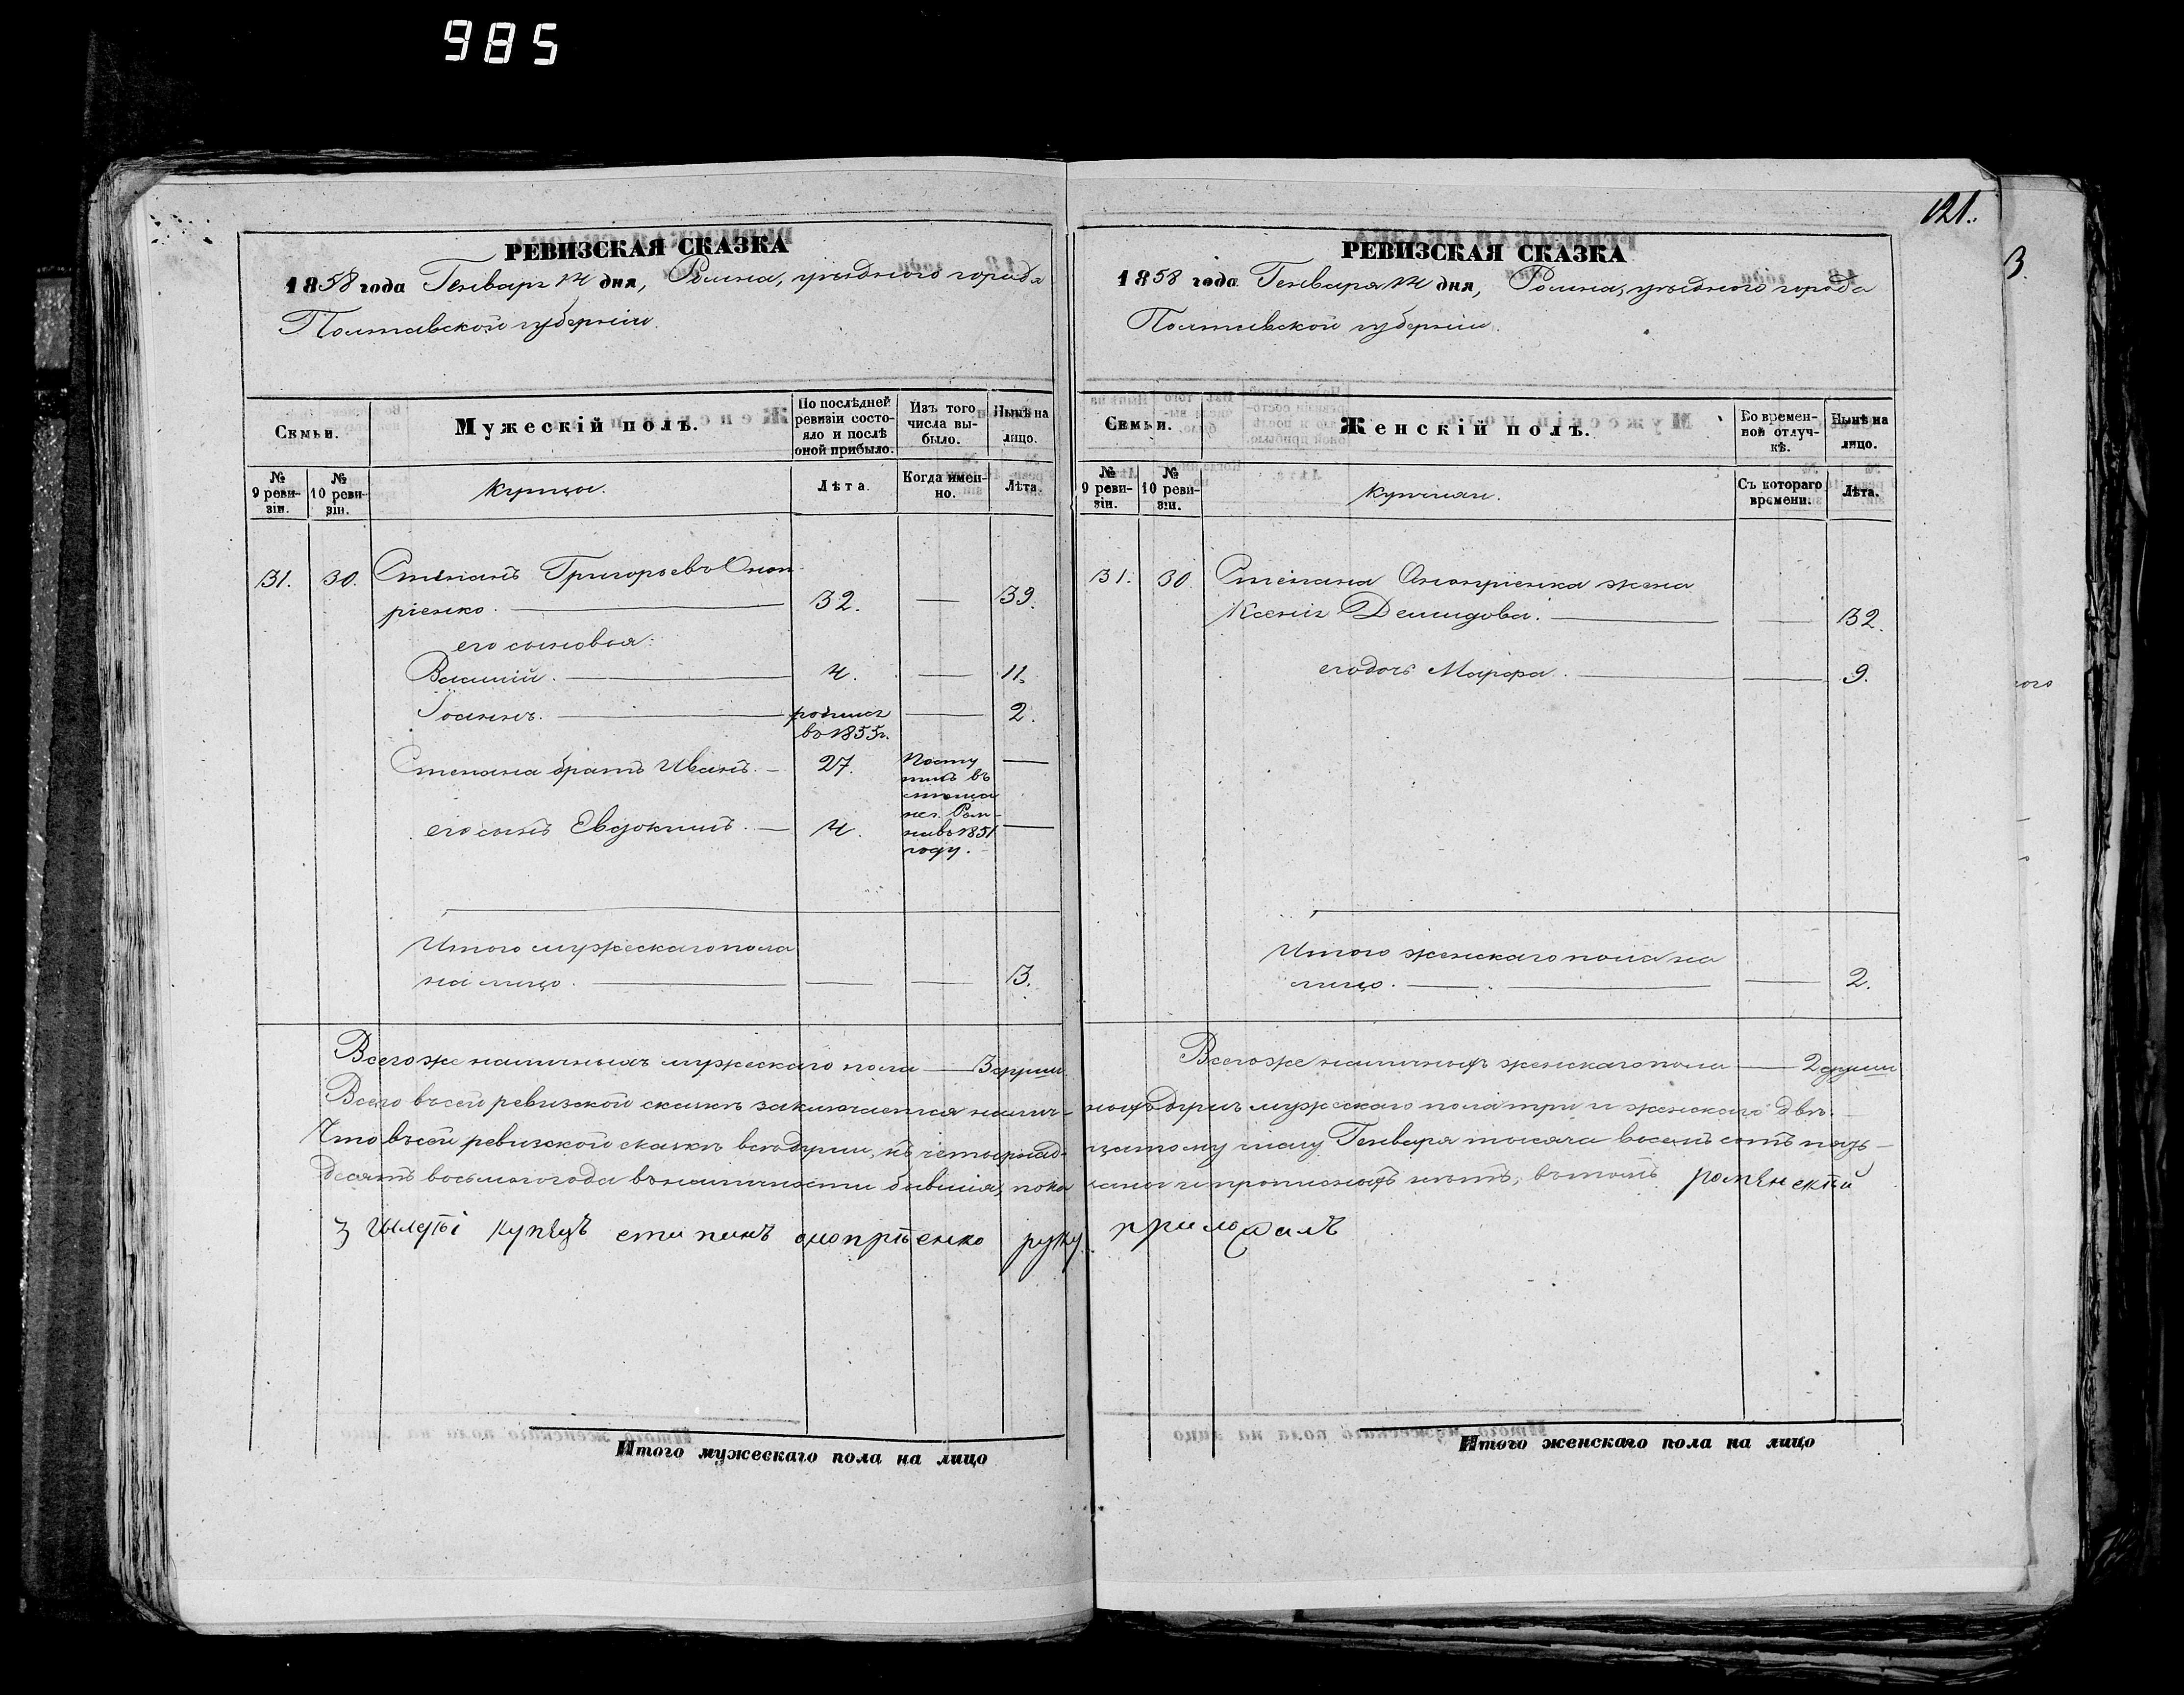 985
121.
РЕВИЗСКАЯ СКАЗКА
1858 года Генваря 14 дня, Ромна, уѣзднаго города
Полтавской губерніи.
Семьи.
Мужескій полъ.
По послѣдней ревизіи состояло и послѣ оной прибыло.
Изъ того числа выбыло.
Нынѣ на лицо.
№ 9 ревизіи.
№ 10 ревизіи.
Купцы.
Лѣта.
Когда именно.
Лѣта.
31. 30. Степанъ Григорьевъ Оноп
ріенко. 32. — 39.
его сыновья:
Василій. 4. — 11.
Іоаннъ. родился — 2.
въ 1855г.
Степана братъ Иванъ. — 27. Посту —
пилъ въ
мѣща
не г. Ром
его сынъ Евдокимъ. — 4. на въ 1851 —
году.
Итого мужескаго пола
на лицо. — — — 3.
Всего же наличныхъ мужескаго пола — 3 души
РЕВИЗСКАЯ СКАЗКА
1858 года Генваря 14 дня, Ромна, уѣзднаго города
Полтавской губерніи.
Семьи.
Женскій полъ.
Во временной отлучкѣ.
Нынѣ на лицо.
№ 9 ревизіи.
№ 10 ревизіи.
Купчихи.
Съ котораго времени.
Лѣта.
31. 30. Степана Онопріенка жена
Ксенія Демидова. — — 32.
его дочь Марфа. — — 9.
Итого женскаго пола на
лицо. — — — 2.
Всего же наличныхъ женскаго пола — 2 души
Всего въ сей ревизской сказкѣ заключается налич- ныхъ душъ мужескаго пола три и женскаго двѣ.
Что въ сей ревизской сказкѣ всѣ души, къ четырнад- цатому числу Генваря тысяча восемь сотъ пять-
десятъ восьмого года въ наличности бывшія, пока заны и прописныхъ нѣтъ, въ томъ роменскій
3 гилдіи купецъ степанъ онопріенко руку приложалъ
Итого мужескаго пола на лицо
Итого женскаго пола на лицо
3